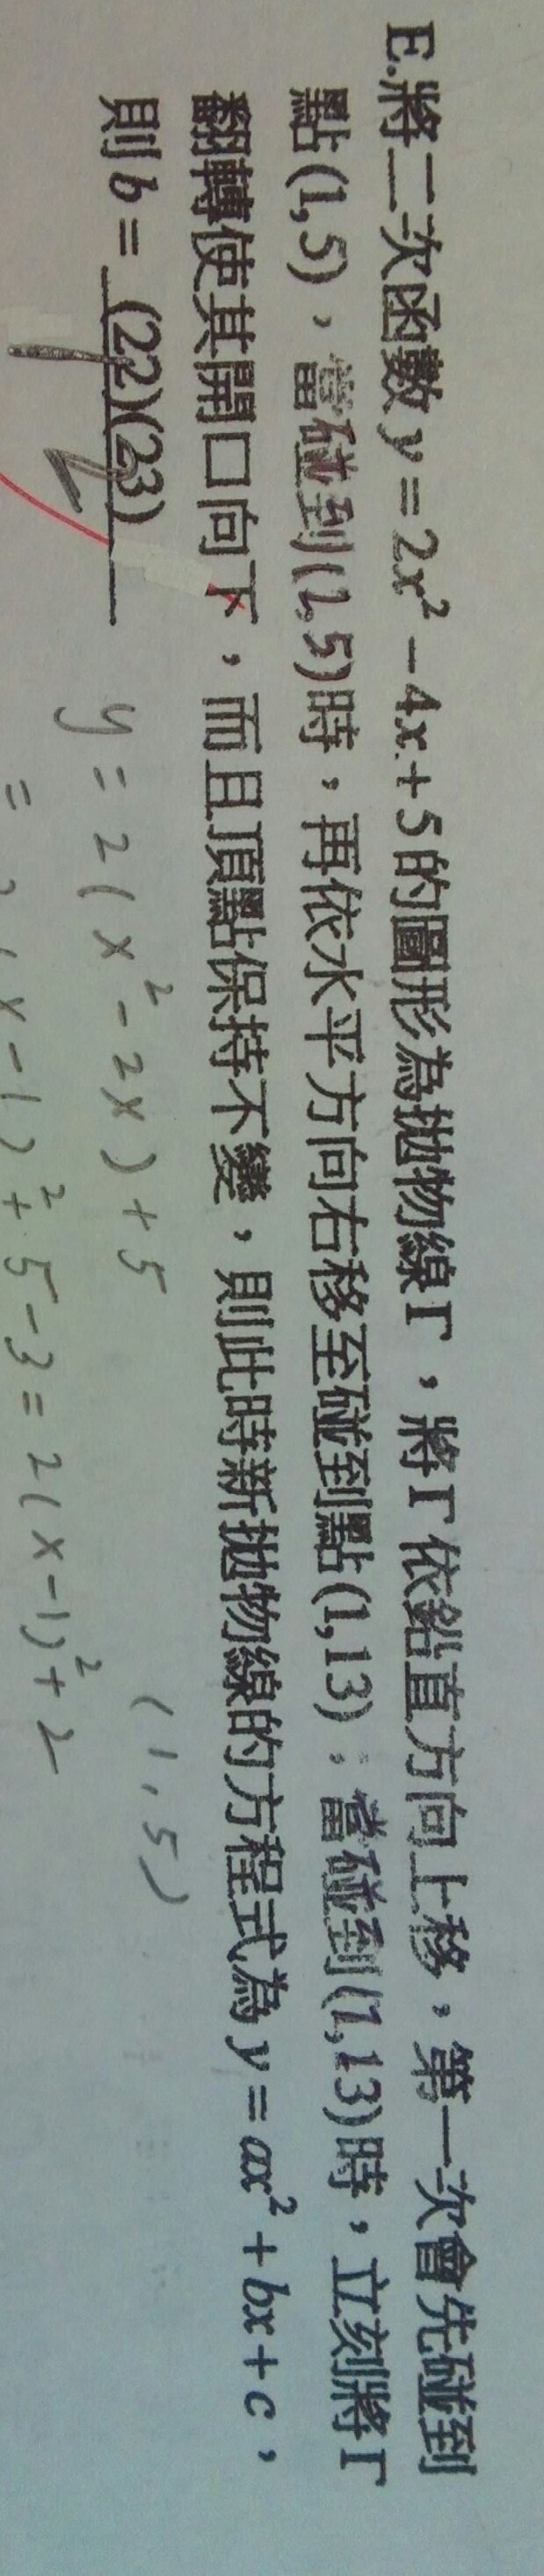 E.將二次函數 y = 2x² − 4x + 5 的圖形為拋物線 Γ，將 Γ 依鉛直方向上移，第一次會先碰到
點 (1,5)，當碰到 (1,5) 時，再依水平方向右移至碰到點 (1,13)；當碰到 (1,13) 時，立刻將 Γ
翻轉使其開口向下，而且頂點保持不變，則此時新拋物線的方程式為 y = ax² + bx + c，
則 b = (22)(23)
(1,5)
y = 2(x² - 2x) + 5
(x-1)² + 5 - 3 = 2(x-1)² + 2